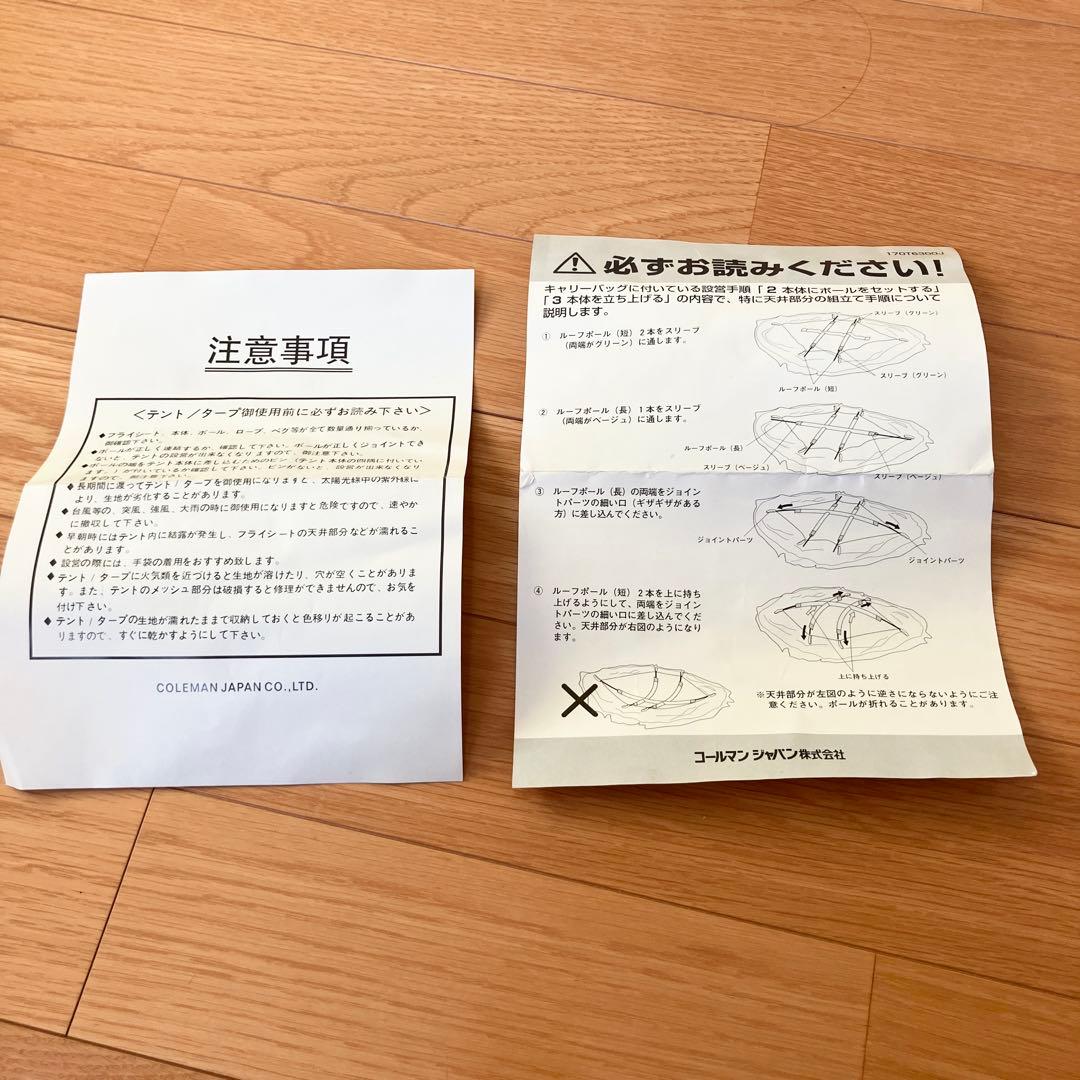 注意事項
＜テント／タープ御使用前に必ずお読み下さい＞
◆フライシート、本体、ポール、ロープ、ペグ等が全て数量通り揃っているか、
御確認下さい。
◆ポールが正しく連結するか、確認して下さい。ポールが正しくジョイントでき
ないと、テントの設営が出来なくなりますので、御注意下さい。
◆ポールの端をテント本体に差し込むためのピン（テント本体の四隅に付いてい
ます。）が付いているか確認して下さい。ピンがないと、設営が出来なくなり
ますので、御注意下さい。
◆長期間に渡ってテント／タープを御使用になりますと、太陽光線中の紫外線に
より、生地が劣化することがあります。
◆台風等の、突風、強風、大雨の時に御使用になりますと危険ですので、速やか
に撤収して下さい。
◆早朝時にはテント内に結露が発生し、フライシートの天井部分などが濡れるこ
とがあります。
◆設営の際には、手袋の着用をおすすめ致します。
◆テント／タープに火気類を近づけると生地が溶けたり、穴が空くことがありま
す。また、テントのメッシュ部分は破損すると修理ができませんので、お気を
付け下さい。
◆テント／タープの生地が濡れたままで収納しておくと色移りが起こることがあ
りますので、すぐに乾かすようにして下さい。
COLEMAN JAPAN CO.,LTD.
170T6300J
必ずお読みください！
キャリーバッグに付いている設営手順「2 本体にポールをセットする」
「3 本体を立ち上げる」の内容で、特に天井部分の組立て手順について
説明します。
① ルーフポール（短）2本をスリーブ
（両端がグリーン）に通します。
スリーブ（グリーン）
スリーブ（グリーン）
ルーフポール（短）
② ルーフポール（長）1本をスリーブ
（両端がベージュ）に通します。
ルーフポール（長）
スリーブ（ベージュ）
スリーブ（ベージュ）
③ ルーフポール（長）の両端をジョイン
トパーツの細い口（ギザギザがある
方）に差し込んでください。
ジョイントパーツ
ジョイントパーツ
④ ルーフポール（短）2本を上に持ち
上げるようにして、両端をジョイン
トパーツの細い口に差し込んでくだ
さい。天井部分が右図のようになり
ます。
上に持ち上げる
※天井部分が左図のように逆さにならないようにご注
意ください。ポールが折れることがあります。
コールマン ジャパン株式会社